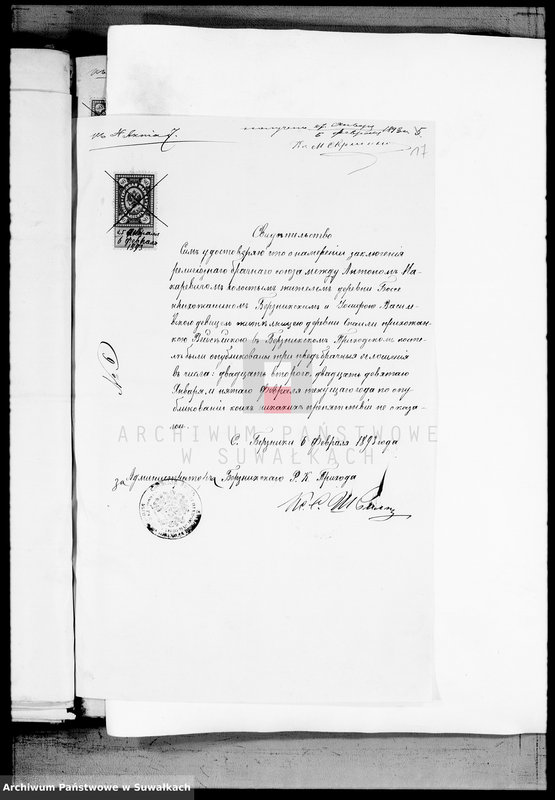 къ N Акта 7.
получена
1893 г.
17
25 Января
6 Февраля
1893
Свидѣтельство
Симъ удостовѣряю что о намѣреніи заключенія
религіознаго брачнаго союза между Антономъ Ма-
каревичомъ холостымъ жителемъ деревни
прихожаниномъ Берзникскимъ и Юзефою Васи-
девицею жительницею деревни прихожан-
кою въ Берзникскомъ Приходскомъ косте-
лѣ были опубликованы три предбрачныя оглашенія
въ числа: двадцать второго, двадцать девятаго
Января, и пятаго Февраля текущаго года по опу-
бликованіи коихъ никакихъ препятствій не оказа-
лось.
С. Берзники 6 Февраля 1893 года
за Администратора Берзникскаго Р. К. Прихода
Кс. С.
ARCHIWUM PAŃSTWOWE
W SUWAŁKACH
Archiwum Państwowe w Suwałkach